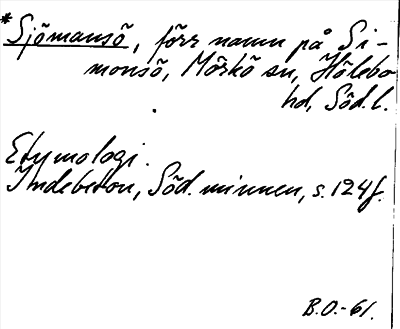 *Sjömansö, förr namn på Si-
monsö, Mörkö sn, Hölebo
hd, Söd. l.
Etymologi.
Indebetou, Söd. minnen, s. 124f.
B.O.-61.